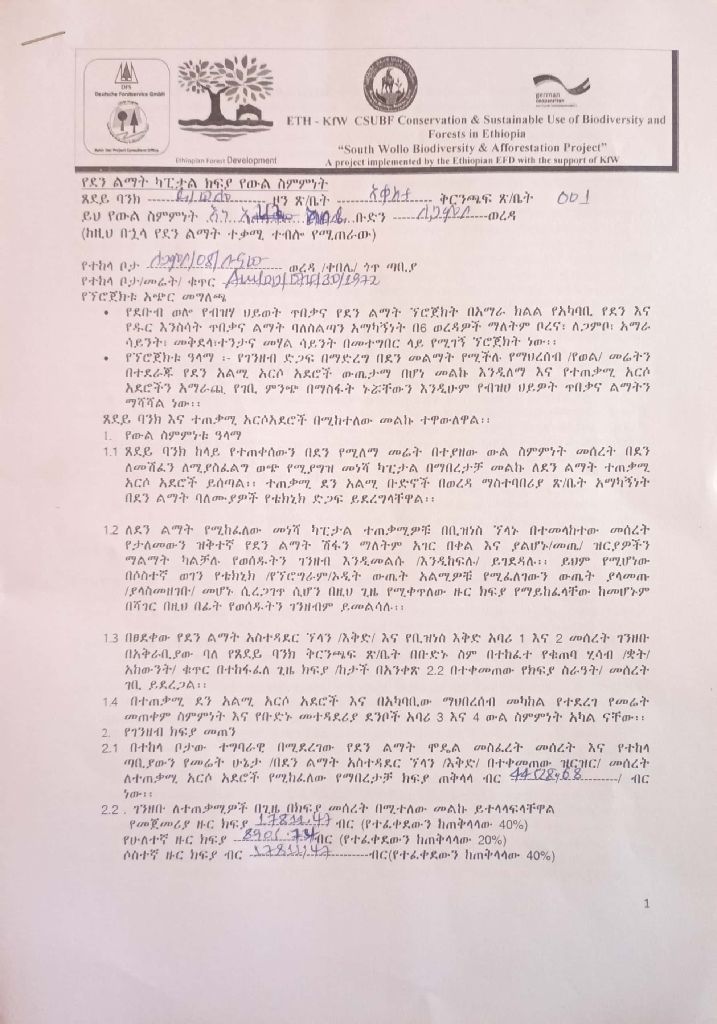 DFS
Deutsche Forstservice GmbH
Ethiopian Forest Development
german
cooperation
ETH - KfW CSUBF Conservation & Sustainable Use of Biodiversity and
Forests in Ethiopia
“South Wollo Biodiversity & Afforestation Project”
A project implemented by the Ethiopian EFD with the support of KfW
የደን ልማት ካፒታል ክፍያ የውል ስምምነት
ጸደይ ባንክ ደ/ወሎ ዞን ጽ/ቤት አቀስታ ቅርንጫፍ ጽ/ቤት 001
ይህ የውል ስምምነት እነ ቡድን ለጋምቦ ወረዳ
(ከዚህ በኋላ የደን ልማት ተቃሚ ተብሎ የሚጠራው)
የተከላ ቦታ ለጋምቦ/08/ ወረዳ /ቀበሌ/ ጎጥ ጣቢያ
የተከላ ቦታ/መሬት/ ቁጥር
የፕሮጀክቱ አጭር መግለጫ
• የደቡብ ወሎ የብዝሃ ህይወት ጥበቃና የደን ልማት ፕሮጀክት በአማራ ክልል የአካባቢ የደን እና
የዱር እንስሳት ጥበቃና ልማት ባለስልጣን አማካኝነት በ6 ወረዳዎች ማለትም ቦረና፣ ለጋምቦ፣ አማራ
ሳይንት፣ መቅደላ፣ተንታና መሃል ሳይንት በመተግበር ላይ የሚገኝ ፕሮጀክት ነው፡፡
• የፕሮጀክቱ ዓላማ ፡- የገንዘብ ድጋፍ በማድረግ በደን መልማት የሚችሉ የማህረሰብ /የወል/ መሬትን
በተደራጁ የደን አልሚ አርሶ አደሮች ውጤታማ በሆነ መልኩ እንዲለማ እና የተጠቃሚ አርሶ
አደሮችን አማራጪ የገቢ ምንጭ በማስፋት ኑሯቸውን እንዲሁም የብዝህ ህይዎት ጥበቃና ልማትን
ማሻሻል ነው፡፡
ጸደይ ባንክ እና ተጠቃሚ አርሶአደሮች በሚከተለው መልኩ ተዋውለዋል፡፡
1. የውል ስምምነቱ ዓላማ
1.1 ጸደይ ባንክ ከላይ የተጠቀሰውን በደን የሚለማ መሬት በተያዘው ውል ስምምነት መሰረት በደን
ለመሸፈን ለሚያስፈልግ ወጭ የሚያግዝ መነሻ ካፒታል በማበረታቻ መልኩ ለደን ልማት ተጠቃሚ
አርሶ አደሮች ይሰጣል፡፡ ተጠቃሚ ደን አልሚ ቡድኖች በወረዳ ማስተባበሪያ ጽ/ቤት አማካኝነት
በደን ልማት ባለሙያዎች የቴክኒክ ድጋፍ ይደረግላቸዋል፡፡
1.2 ለደን ልማት የሚከፈለው መነሻ ካፒታል ተጠቃሚዎቹ በቢዝነስ ፕላኑ በተመላከተው መሰረት
የታለመውን ዝቅተኛ የደን ልማት ሽፋን ማለትም አገር በቀል እና ያልሆኑ/መጤ/ ዝርያዎችን
ማልማት ካልቻሉ የወሰዱትን ገንዘብ እንዲመልሱ /እንዲከፍሉ/ ይገደዳሉ፡፡ ይህም የሚሆነው
በሶስተኛ ወገን የቴክኒክ /የፕሮግራም/ኦዲት ውጤት አልሚዎቹ የሚፈለገውን ውጤት ያላመጡ
/ያላስመዘገቡ/ መሆኑ ሲረጋገጥ ሲሆን በዚህ ጊዜ የሚቀጥለው ዙር ክፍያ የማይከፈላቸው ከመሆኑም
በሻገር በዚህ በፊት የወሰዱትን ገንዘብም ይመልሳሉ፡፡
1.3 በፀደቀው የደን ልማት አስተዳደር ፕላን /እቅድ/ እና የቢዝነስ እቅድ አባሪ 1 እና 2 መሰረት ገንዘቡ
በአቅራቢያው ባለ የጸደይ ባንክ ቅርንጫፍ ጽ/ቤት በቡድኑ ስም በተከፈተ የቁጠባ ሂሳብ /ቋት/
አካውንት/ ቁጥር በተከፋፈለ ጊዜ ክፍያ /ከታች በአንቀጽ 2.2 በተቀመጠው የክፍያ ስራዓት/ መሰረት
ገቢ ይደረጋል፡፡
1.4 በተጠቃሚ ደን አልሚ አርሶ አደሮች እና በአካባቢው ማህበረሰብ መካከል የተደረገ የመሬት
መጠቀም ስምምነት እና የቡድኑ መተዳደሪያ ደንቦች አባሪ 3 እና 4 ውል ስምምነት አካል ናቸው፡፡
2. የገንዘብ ክፍያ መጠን
2.1 በተከላ ቦታው ተግባራዊ በሚደረገው የደን ልማት ሞዴል መስፈረት መሰረት እና የተከላ
ጣቢያውን የመሬት ሁኔታ /በደን ልማት አስተዳደር ፕላን /እቅድ/ በተቀመጠው ዝርዝር/ መሰረት
ለተጠቃሚ አርሶ አደሮች የሚከፈለው የማበረታቻ ክፍያ ጠቅላላ ብር 44528.68 / ብር
ነው፡፡
2.2 . ገንዘቡ ለተጠቃሚዎች በጊዜ በክፍያ መሰረት በሚተለው መልኩ ይተላላፍላቸዋል
የመጀመሪያ ዙር ክፍያ 17811.47 ብር (የተፈቀደውን ከጠቅላላው 40%)
የሁለተኛ ዙር ክፍያ 8905.74 ብር (የተፈቀደውን ከጠቅላላው 20%)
ሶስተኛ ዙር ክፍያ ብር 17811.47 ብር(የተፈቀደውን ከጠቅላላው 40%)
1